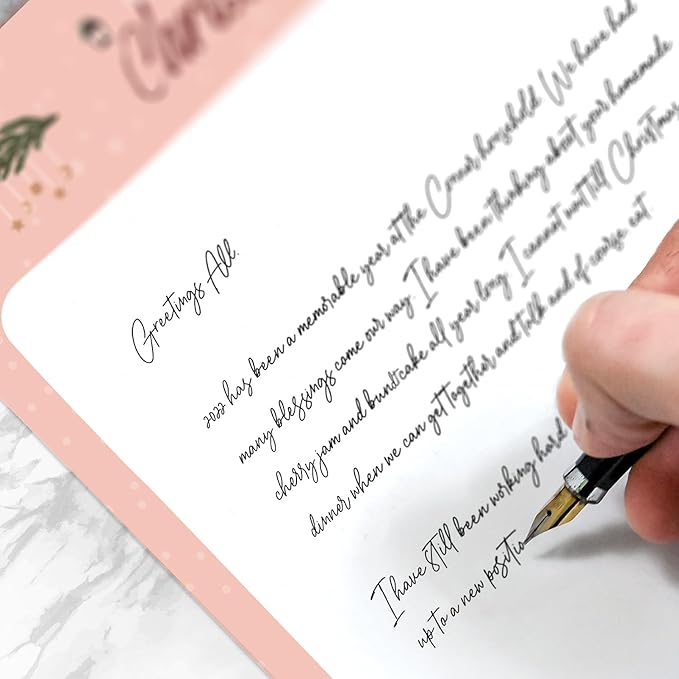 Greetings All,
2022 has been a memorable year at the household. We have had
many blessings come our way. I have been thinking about your homemade
cherry jam and bundtcake all year long. I cannot wait till Christmas
dinner when we can get together and talk and of course eat
I have still been working hard
up to a new positio